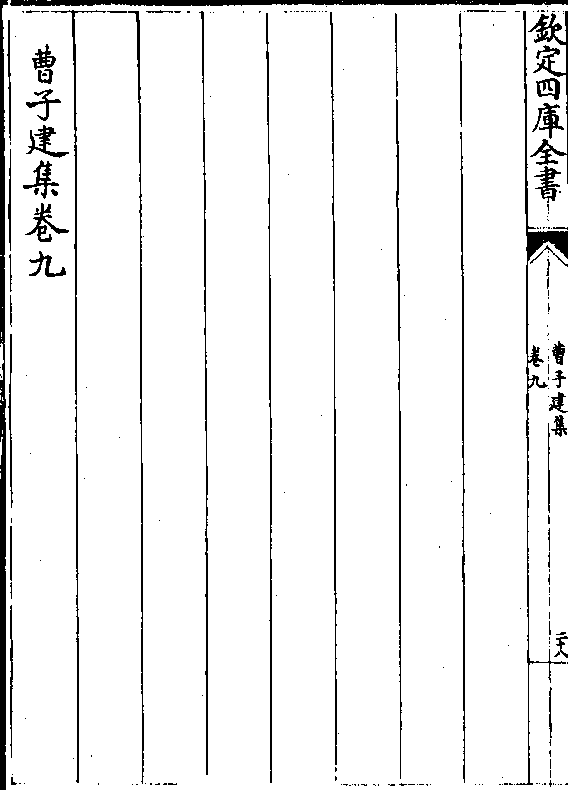 欽定四庫全書
曹子建集
卷九
二十八
曹子建集卷九